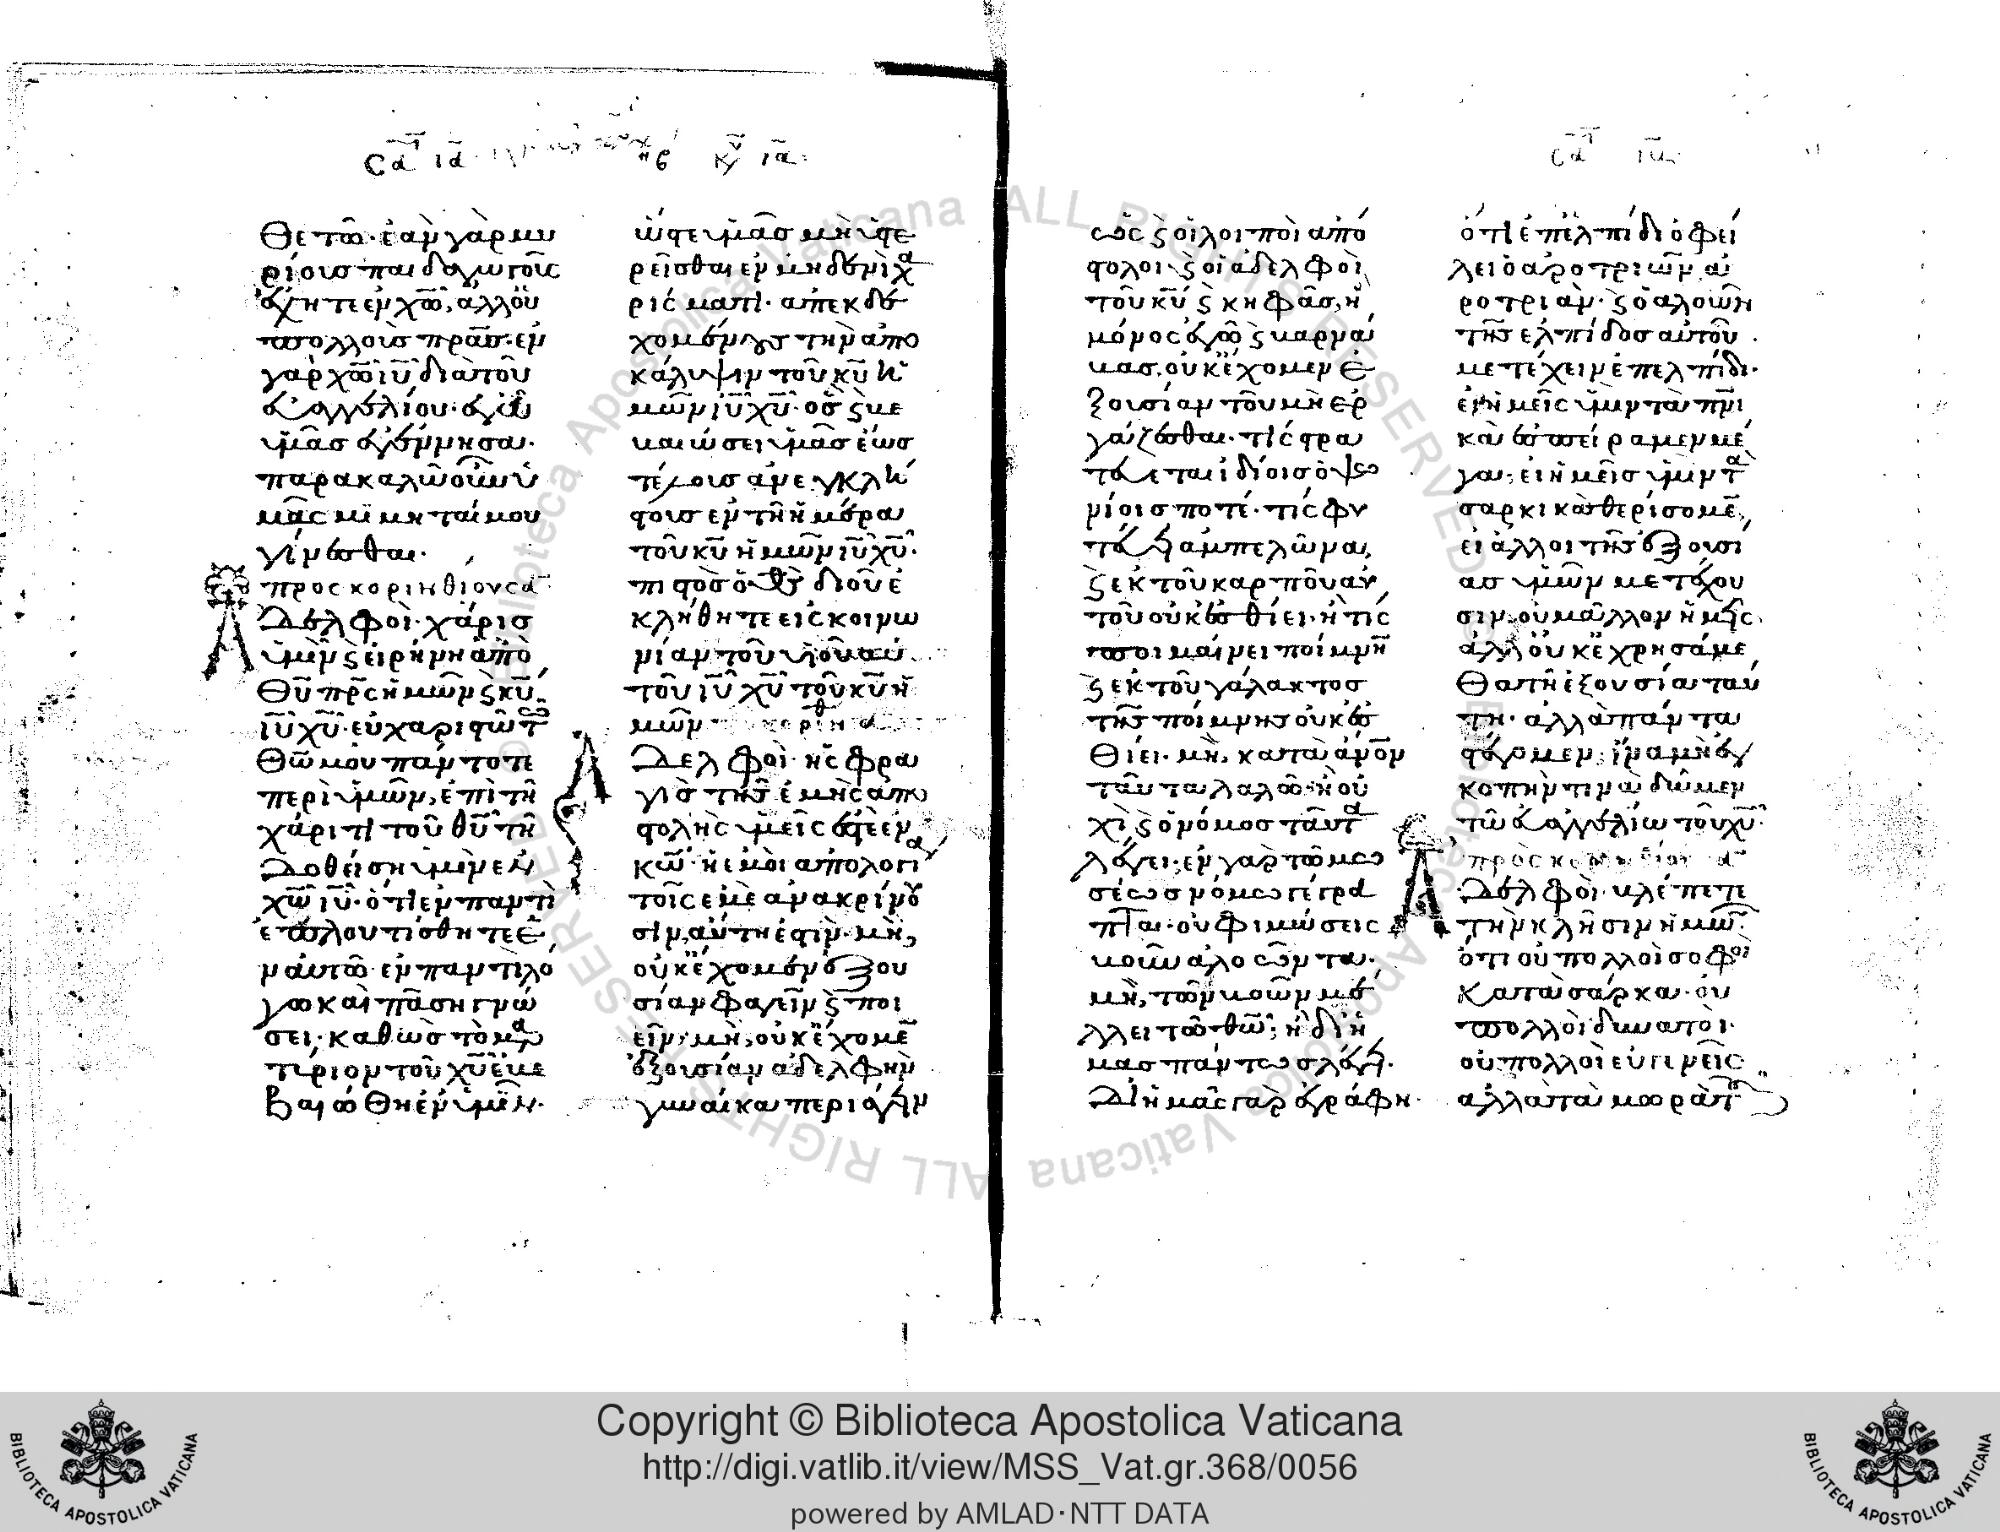 θετῶ· ἐὰν γὰρ μυ
ρίους παιδαγωγοῦς
ἔχητε ἐν χῶ, ἀλλ' οὐ
πολλοὺς πρᾶς· ἐν
γὰρ χῶ ἰῦ διὰ τοῦ
εὐαγγελίου· ἐγὼ
ὑμᾶς ἐγέννησα·
παρακαλῶ οὖν ὑ
μᾶς μιμηταί μου
γίνεσθαι·
προς κορινθιους α
Ἀδελφοὶ· χάρις
ὑμῖν ϗ εἰρήνη ἀπὸ
θῦ πρς ἡμῶν ϗ κῦ
ἰῦ χῦ· εὐχαριστῶ τῶ
θῶ μου πάντοτε
περὶ ὑμῶν, ἐπὶ τῆ
χάριτι τοῦ θῦ τῆ
δοθείση ὑμῖν ἐν
χῶ ἰῦ· ὅτι ἐν παντὶ
ἐπλουτίσθητε ἐ
ν αὐτῶ· ἐν παντὶ λό
γω καὶ πάση γνώ
σει· καθὼς τὸ μαρ
τύριον τοῦ χῦ ἐβε
βαιώθη ἐν ὑμῖν·
ὥστε ὑμᾶς μὴ ὑστε
ρεῖσθαι ἐν μηδενὶ χα
ρίσματι· ἀπεκδε
χομένους τὴν ἀπο
κάλυψιν τοῦ κῦ ἡ
μῶν ἰῦ χῦ· ὃς ϗ βε
βαιώσει ὑμᾶς ἕως
τέλους ἀνεγκλή
τους ἐν τῆ ἡμέρα
τοῦ κῦ ἡμῶν ἰῦ χῦ·
πιστὸς ὁ θς δι' οὗ ἐ
κλήθητε εἰς κοινω
νίαν τοῦ υἱοῦ αὐ
τοῦ ἰῦ χῦ τοῦ κῦ ἡ
μῶν
Ἀδελφοὶ· ἡ σφρα
γὶς τῆς ἐμῆς ἀπο
στολῆς ὑμεῖς ἐστὲ ἐν
κῶ· ἡ ἐμὴ ἀπολογία
τοῖς ἐμὲ ἀνακρίνου
σιν, αὕτη ἐστίν· μὴ,
οὐκ ἔχομεν ἐξου
σίαν φαγεῖν ϗ ποι
εῖν; μὴ, οὐκ ἔχομεν
ἐξουσίαν ἀδελφὴν
γυναῖκα περιάγειν
ὡς ϗ οἱ λοιποὶ ἀπό
στολοι· ϗ οἱ ἀδελφοὶ
τοῦ κῦ ϗ κηφᾶς, ἢ
μόνος ἐγὼ ϗ βαρνά
βας, οὐκ ἔχομεν ἐ
ξουσίαν τοῦ μὴ ἐρ
γάζεσθαι· τίς στρα
τεύεται ἰδίοις ὀψω
νίοις ποτέ· τίς φυ
τεύει ἀμπελῶνα,
ϗ ἐκ τοῦ καρποῦ αὐ
τοῦ οὐκ ἐσθίει· ἢ τίς
ποιμαίνει ποίμνην
ϗ ἐκ τοῦ γάλακτος
τῆς ποίμνης οὐκ ἐσ
θίει· μὴ, κατὰ ἄνον
ταῦτα λαλῶ· ἢ οὐ
χὶ ϗ ὁ νόμος ταῦτα
λέγει· ἐν γὰρ τῶ μω
σέως νόμω γέγρα
πται· οὐ φιμώσεις
βοῦν ἀλοῶντα·
μὴ, τῶν βοῶν μέ
λλει τῶ θῶ; ἢ δι' ἡ
μᾶς πάντως λέγει·
δι' ἡμᾶς γὰρ ἐγράφη·
ὅτι ἐπ' ἐλπίδι ὀφεί
λει ὁ ἀροτριῶν ἀ
ροτριᾶν· ϗ ὁ ἀλοῶν
τῆς ἐλπίδος αὐτοῦ
μετέχειν ἐπ' ἐλπίδι·
εἰ ἡμεῖς ὑμῖν τὰ πνι
κὰ ἐσπείραμεν μέ
γα, εἰ ἡμεῖς ὑμῖν τὰ
σαρκικὰ θερίσομεν,
εἰ ἄλλοι τῆς ἐξουσί
ας ὑμῶν μετέχου
σιν, οὐ μᾶλλον ἡμεῖς·
ἀλλ' οὐκ ἐχρησάμε
θα τῆ ἐξουσία ταύ
τη· ἀλλὰ πάντα
στέγομεν, ἵνα μὴ ἐγ
κοπήν τινα δῶμεν
τῶ εὐαγγελίω τοῦ χῦ·
Ἀδελφοὶ· βλέπετε
τὴν κλῆσιν ἡμῶν·
ὅτι οὐ πολλοὶ σοφοὶ
κατὰ σάρκα· οὐ
πολλοὶ δυνατοὶ·
οὐ πολλοὶ εὐγενεῖς
ἀλλὰ τὰ μωρὰ τοῦ
Copyright © Biblioteca Apostolica Vaticana
http://digi.vatlib.it/view/MSS_Vat.gr.368/0056
powered by AMLAD·NTT DATA
BIBLIOTECA APOSTOLICA VATICANA
BIBLIOTECA APOSTOLICA VATICANA